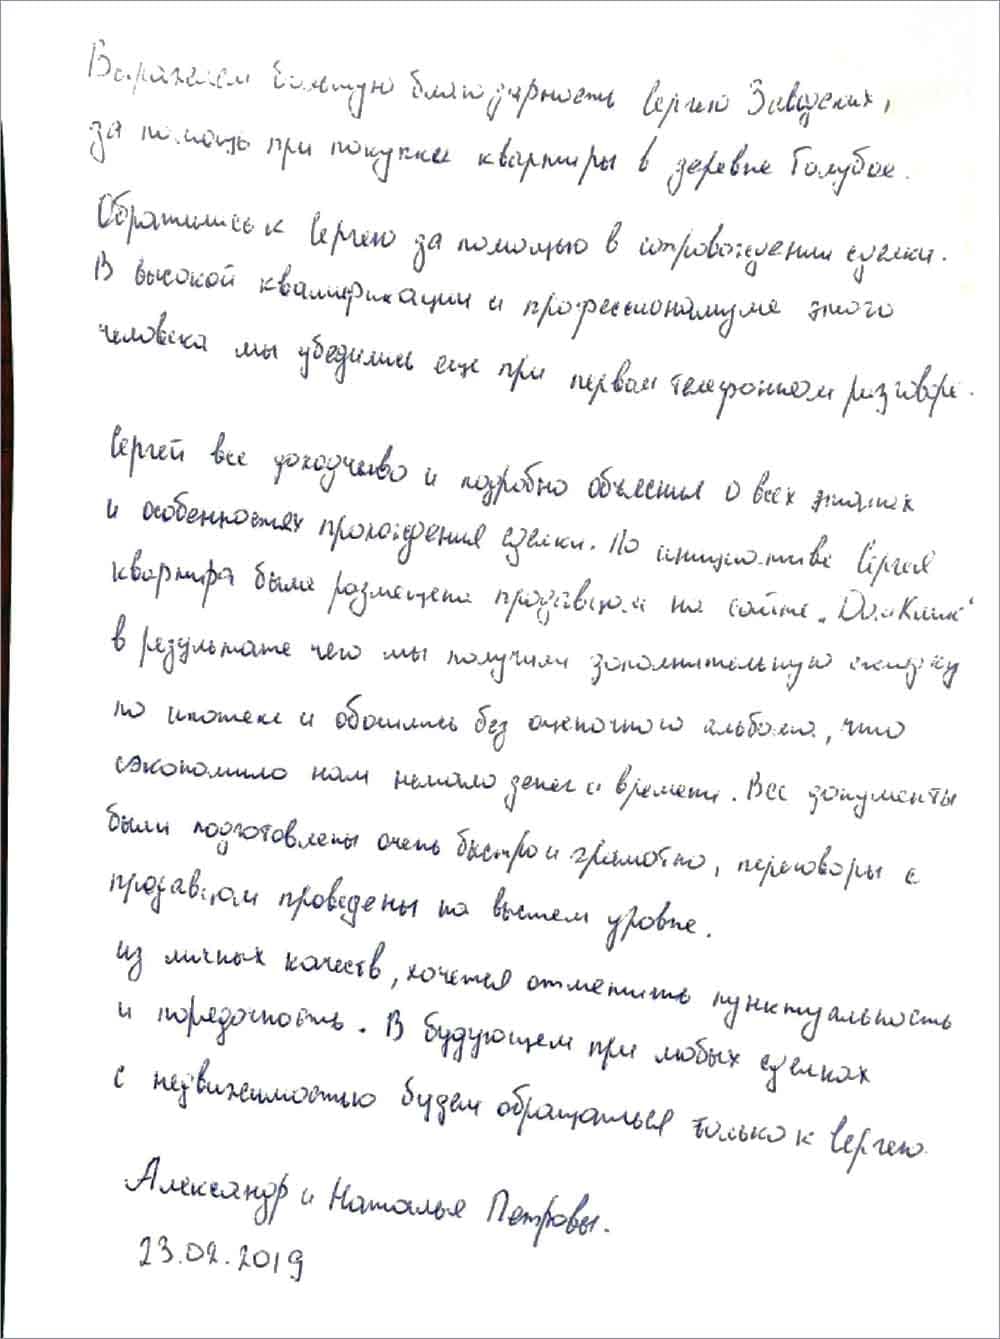 Выражаем большую благодарность Сергею Заведских,
за помощь при покупке квартиры в деревне Голубое.
Обратились к Сергею за помощью в сопровождении сделки.
В высокой квалификации и профессионализме этого
человека мы убедились еще при первом телефонном разговоре.
Сергей все доходчиво и подробно объяснил о всех этапах
и особенностях прохождения сделки. По инициативе Сергея
квартира была размещена продавцом на сайте „ДомКлик“
в результате чего мы получили дополнительную скидку
по ипотеке и обошлись без оценочного альбома, что
сэкономило нам немало денег и времени. Все документы
были подготовлены очень быстро и грамотно, переговоры с
продавцом проведены на высшем уровне.
Из личных качеств, хочется отметить пунктуальность
и порядочность. В будующем при любых сделках
с недвижимостью будем обращаться только к Сергею.
Александр и Наталья Петровы.
23.02.2019